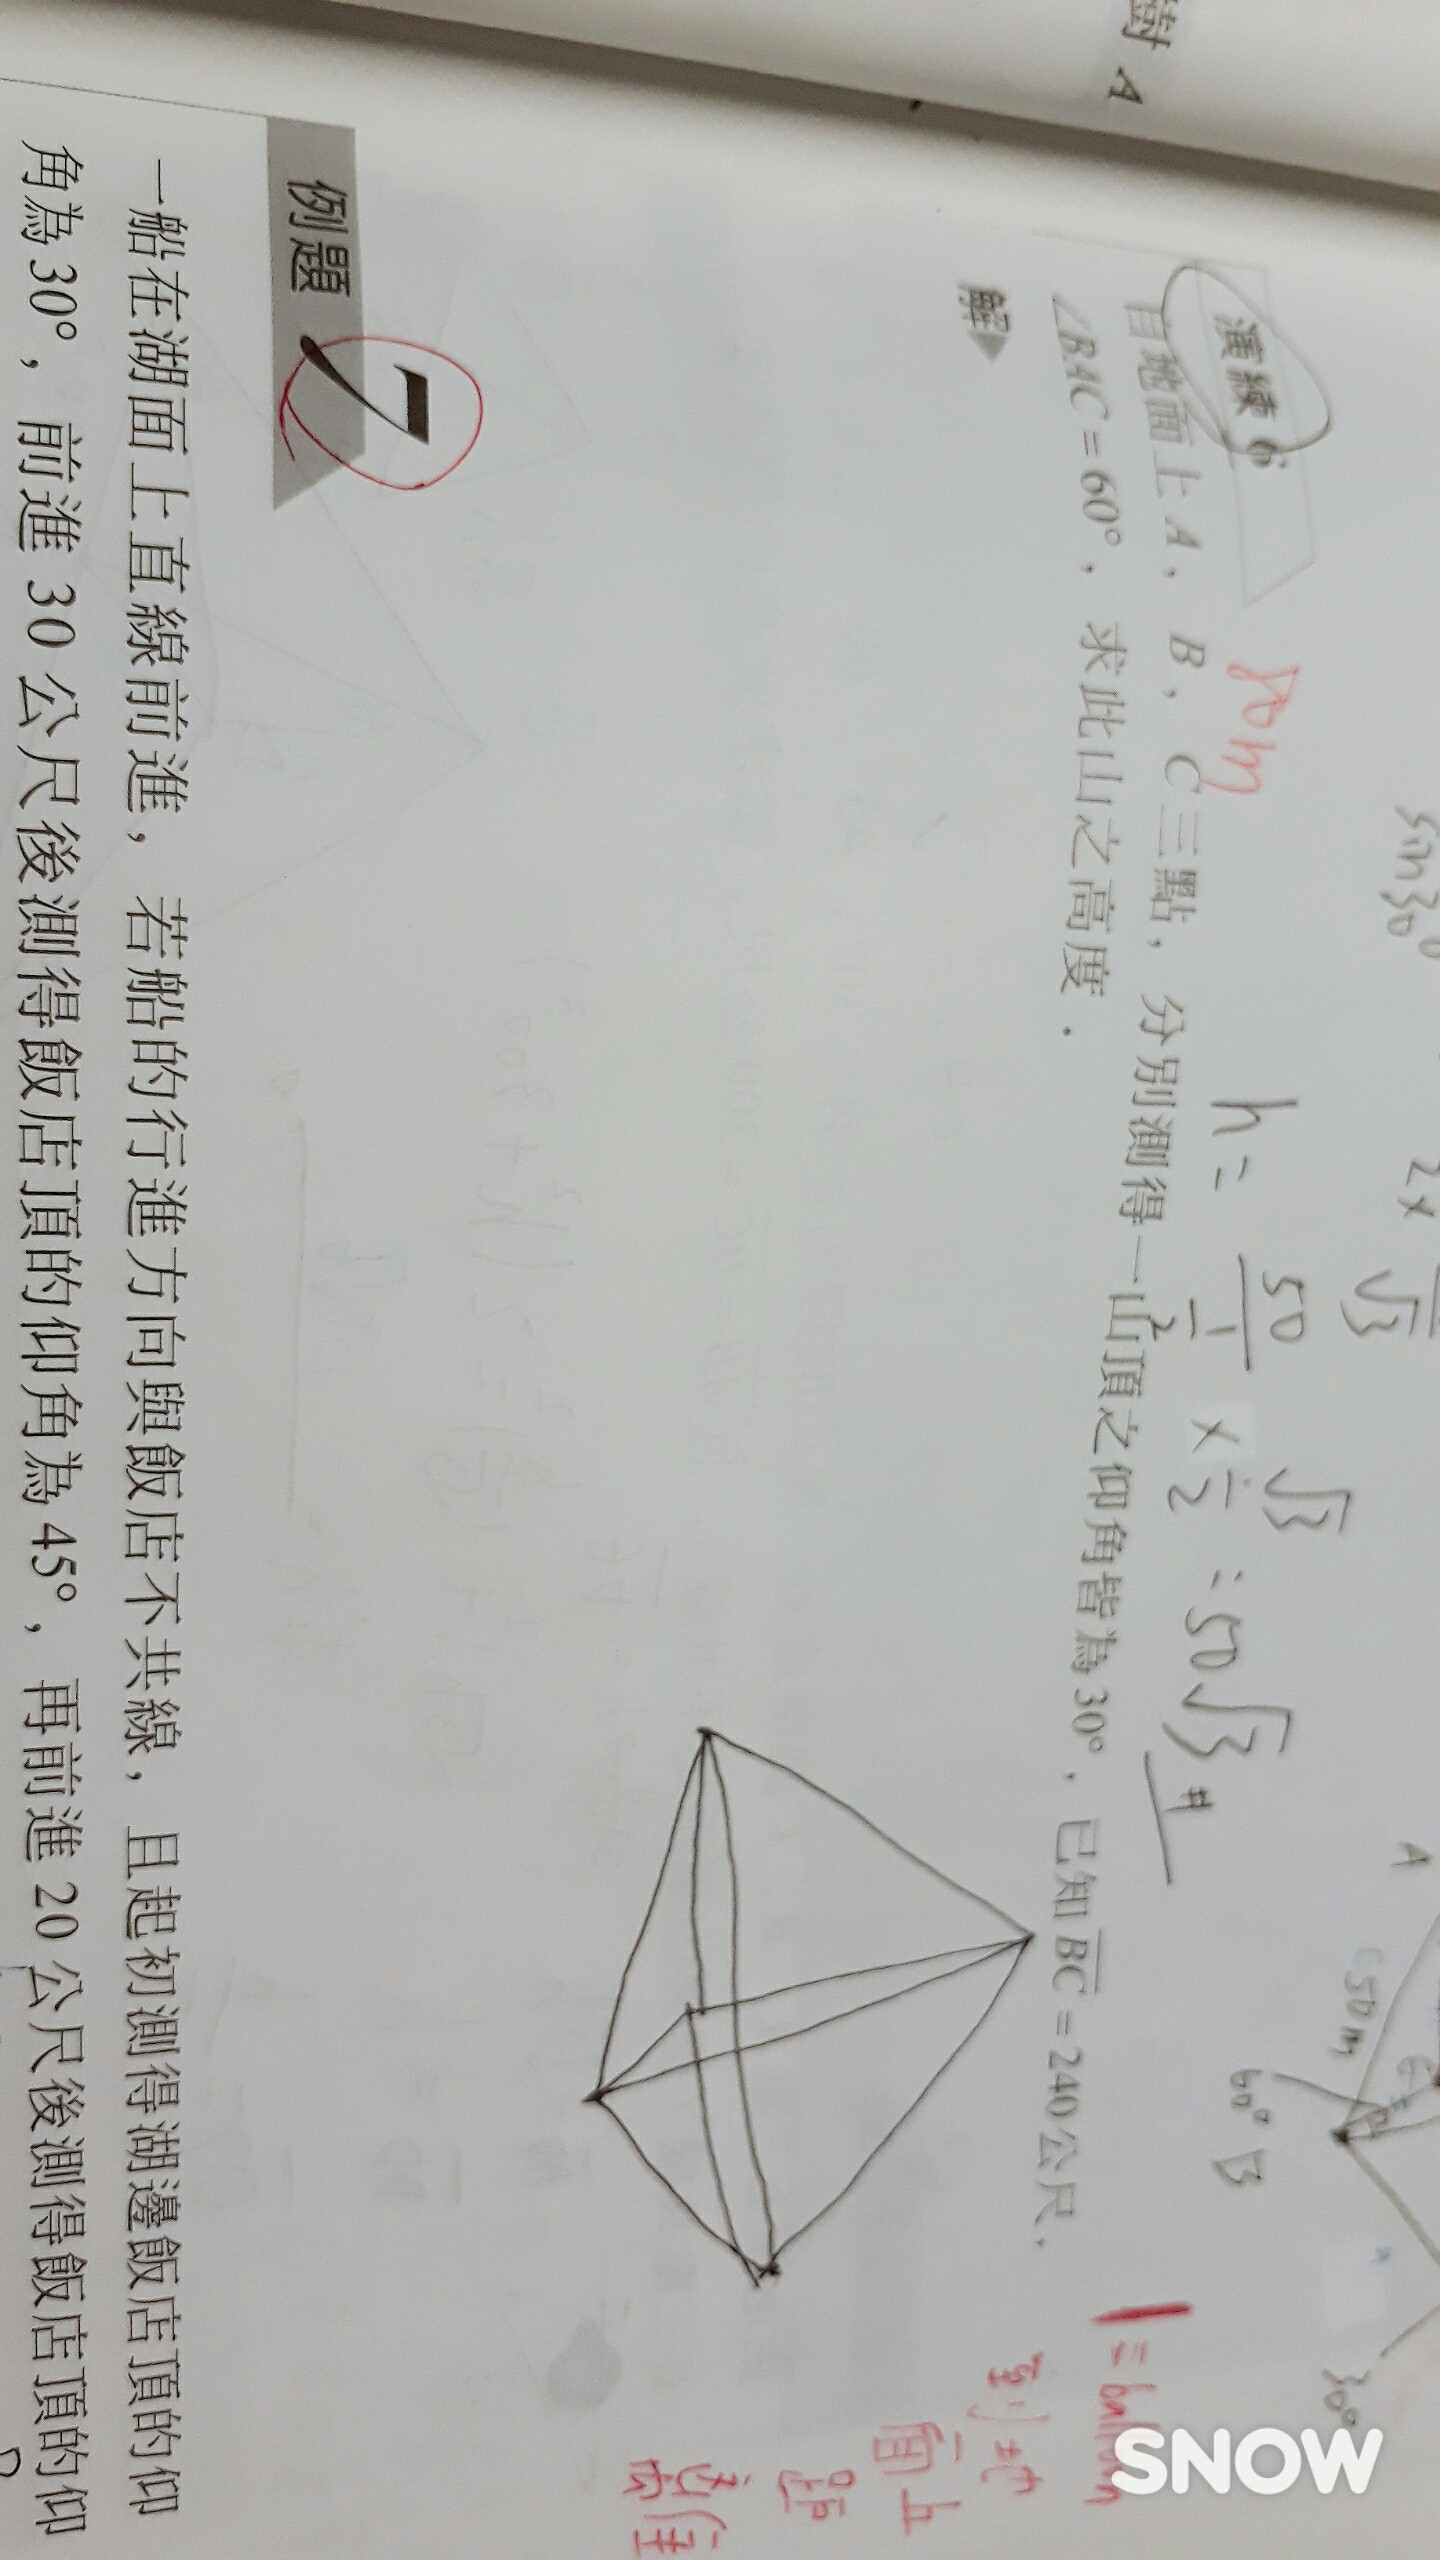 對 A
sin30°
2x
√3
80m
h= 50/(1/2) × √3/2 = 50√3 #
A
50m
60° B
30°
演練 6
自地面上 A，B，C 三點，分別測得一山頂之仰角皆為 30°，已知 BC = 240 公尺，
∠BAC = 60°，求此山之高度．
解
1 = balloon
到地
面上
距
離
例題 7
一船在湖面上直線前進，若船的行進方向與飯店不共線，且起初測得湖邊飯店頂的仰
角為 30°，前進 30 公尺後測得飯店頂的仰角為 45°，再前進 20 公尺後測得飯店頂的仰
SNOW